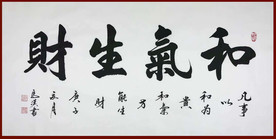 和氣生財
凡事
以
和為
貴
和氣
方
能生
財
庚子
書